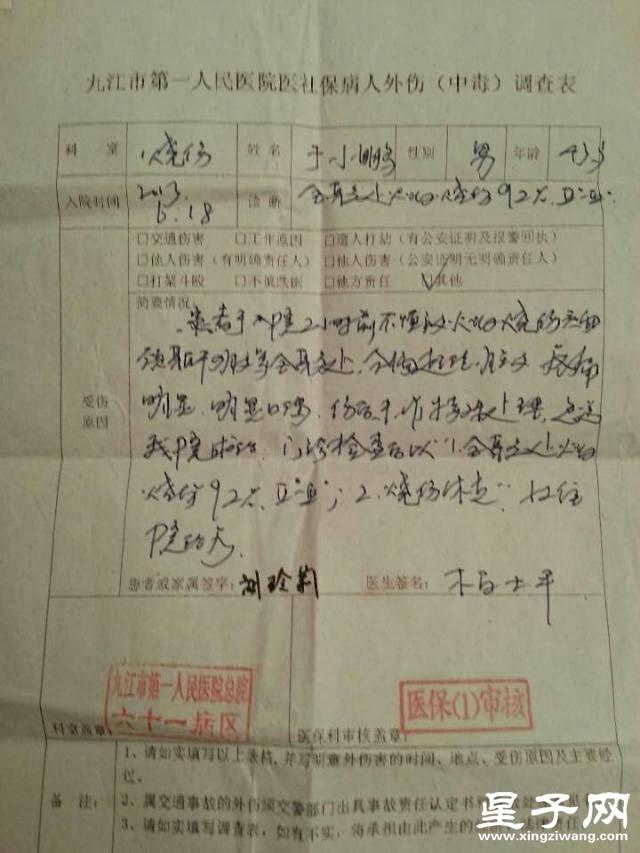 九江市第一人民医院医社保病人外伤（中毒）调查表
科 室 烧伤 姓 名 于小鹏 性别 男 年龄 43岁
入院时间 2013.6.18 诊 断 全身多处火焰烧伤92%
□交通伤害 □工作原因 □遭人打劫（有公安证明及报警回执）
□他人伤害（有明确责任人） □他人伤害（公安证明无明确责任人）
□打架斗殴 □不慎跌倒 □他方责任 ☑其他
简要情况：
患者于入院2小时前不慎被火焰烧伤头面
颈躯干四肢等全身多处，疼痛
明显，明显口渴，伤后未作特殊处理，急送
我院救治，门诊检查后以“1.全身多处火焰
烧伤92%；2.烧伤休克”收住
院治疗。
受伤
原因
患者或家属签字： 医生签名：
九江市第一人民医院总院
六十一病区
医保(1)审核
科室盖章： 医保科审核盖章：
备 注：
1、请如实填写以上表格，并写明意外伤害的时间、地点、受伤原因及主要经
过。
2、属交通事故的外伤须交警部门出具事故责任认定书
3、请如实填写调查表，如有不实，将承担由此产生的
星子网
www.xingziwang.com